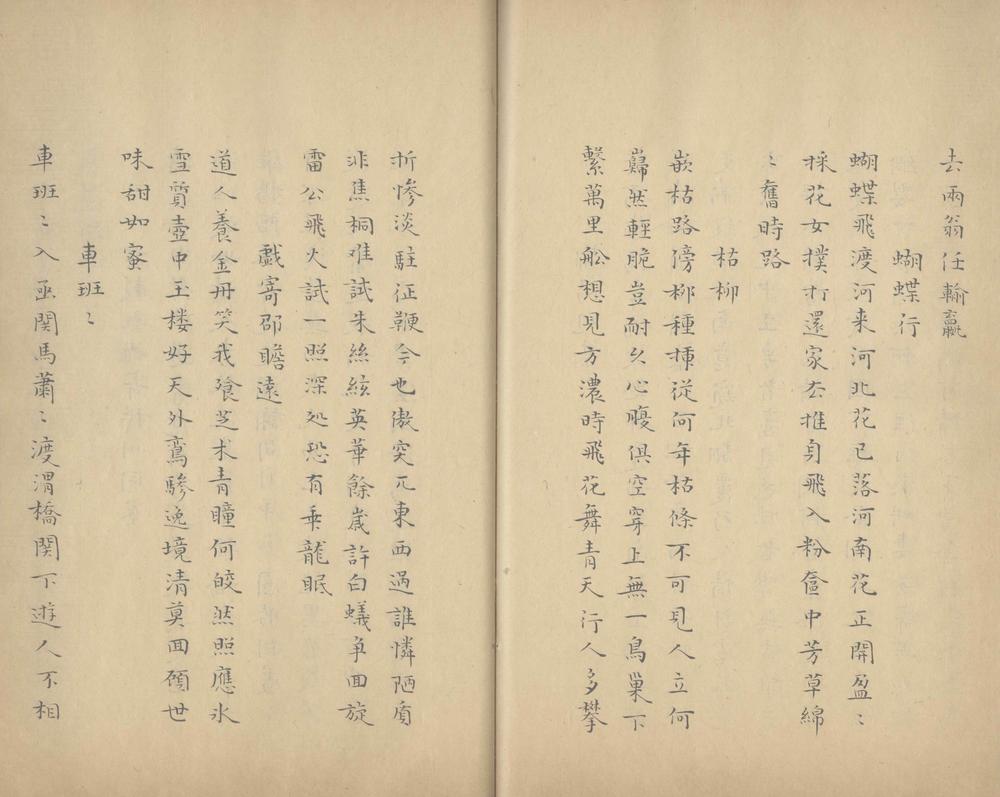 去兩翁任輸贏
蝴蝶行
蝴蝶飛渡河来河北花已落河南花正開盈〻
採花女撲打還家去推身飛入粉奩中芳草綿
〻舊時路
枯柳
嵌枯路傍柳種揷從何年枯條不可見人立何
巋然輕脆豈耐久心腹俱空穿上無一鳥巢下
繫萬里船想見方濃時飛花舞青天行人多攀
折慘淡駐征鞭今也傲突兀東西過誰憐陋質
非焦桐难試朱絲絃英華餘歲許白蟻争面旋
雷公飛火試一照深処恐有乗龍眠
戲寄邵瞻遠
道人養金丹笑我飡芝术青瞳何皎然照應氷
雪質壺中玉楼好天外鸞驂逸境清莫回頋世
味甜如蜜
車班〻
車班〻入函関馬蕭〻渡渭橋関下遊人不相